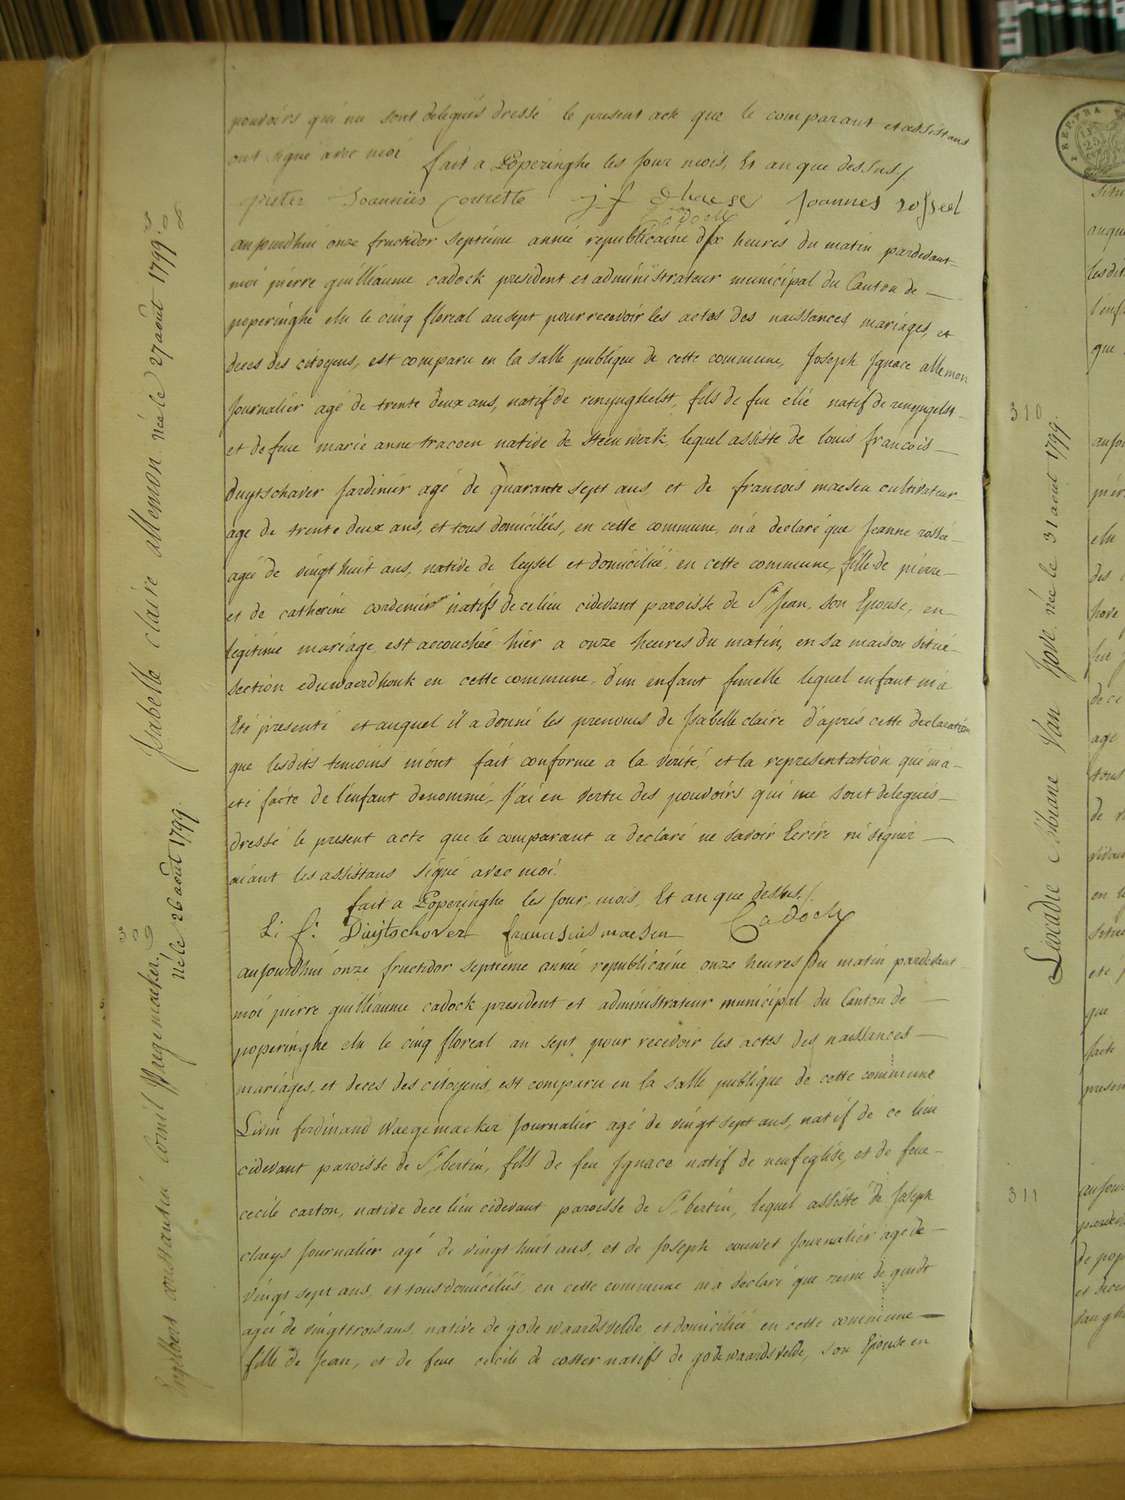 pouvoirs qui me sont delegués dressé le present acte que le comparant et assistans
ont signé avec moi fait a Poperinghe les jour mois, Et an que dessus /.
pieter Joannius J f Joannes rosseel
Cadock
aujourdhui onze fructidor septiéme année republicaine dix heures du matin pardevant
moi pierre guilliaume cadock president et administrateur municipal du Canton de
poperinghe elu le cinq floreal an sept pour recevoir les actes des naissances mariages, et
deces des citoyens, est comparu en la salle publique de cette commune, Joseph Ignace allemon
journalier agé de trente deux ans, natif de renynghelst, fils de feu elie natif de renyngelst
et de feue marie anne tracoen native de Steenwerk lequel assisté de louis francois
Duytschaver Jardinier agé de quarante sept ans, et de francois maesen cultivateur
agé de trente deux ans, et tous domiciliés, en cette commune, m'a declaré que Jeanne
ageé de vingt huit ans, native de leysel et domiciliée, en cette commune, fille de pierre
et de catherine cordenier natifs de ce lieu cidevant paroisse de St. Jean, son Epouse, en
legitime mariage est accouchée hier a onze heures du matin, en sa maison situé
section eduwaerdhouk en cette commune, d'un enfant femelle lequel enfant m'a
été presenté et auquel il a donné les prenoms de Isabelle claire d'aprés cette declaration
que lesdits temoins m'ont fait conforme a la verité, et la representation qui m'a
eté faite de l'enfant denommé, J'ai en vertu des pouvoirs qui me sont delegués
dressé le present acte que le comparant a declaré ne savoir Ecrire ni signer
aiant les assistans signé avec moi.
fait a Poperinghe les Jour, mois, Et an que dessus /.
L: f: Duijtschaver franciscus maesen Cadock
aujourdhui onze fructidor septiéme année republicaine onze heures du matin pardevant
moi pierre guilliaume cadock president et administrateur municipal du Canton de
poperinghe elu le cinq floreal an sept pour recevoir les actes des naissances
mariages, et deces des citoyens, est comparu en la salle publique de cette commune
Livin ferdinand Waegemaeker Journalier agé de vingt sept ans, natif de ce lieu
cidevant paroisse de St. bertin, fils de feu Ignace natif de neufeglise, et de feue
cecile carton, native de ce lieu cidevant paroisse de St. bertin, lequel assisté de Joseph
claeys journalier agé de vingt huit ans, et de Joseph couvet journalier agé de
vingt sept ans, et tous domiciliés, en cette commune m'a declaré que reine de
ageé de vingttrois ans, native de godewaardsvelde et domiciliée en cette commune
fille de Jean, et de feue cecile de coster natifs de godewaardsvelde, son Epouse en
Isabelle claire allemon née le 27 août 1799
308
Engelbert constantin Cornil Waegemaeker
né le 26 août 1799
309
310
Leocadie Van née le 31 août 1799
311